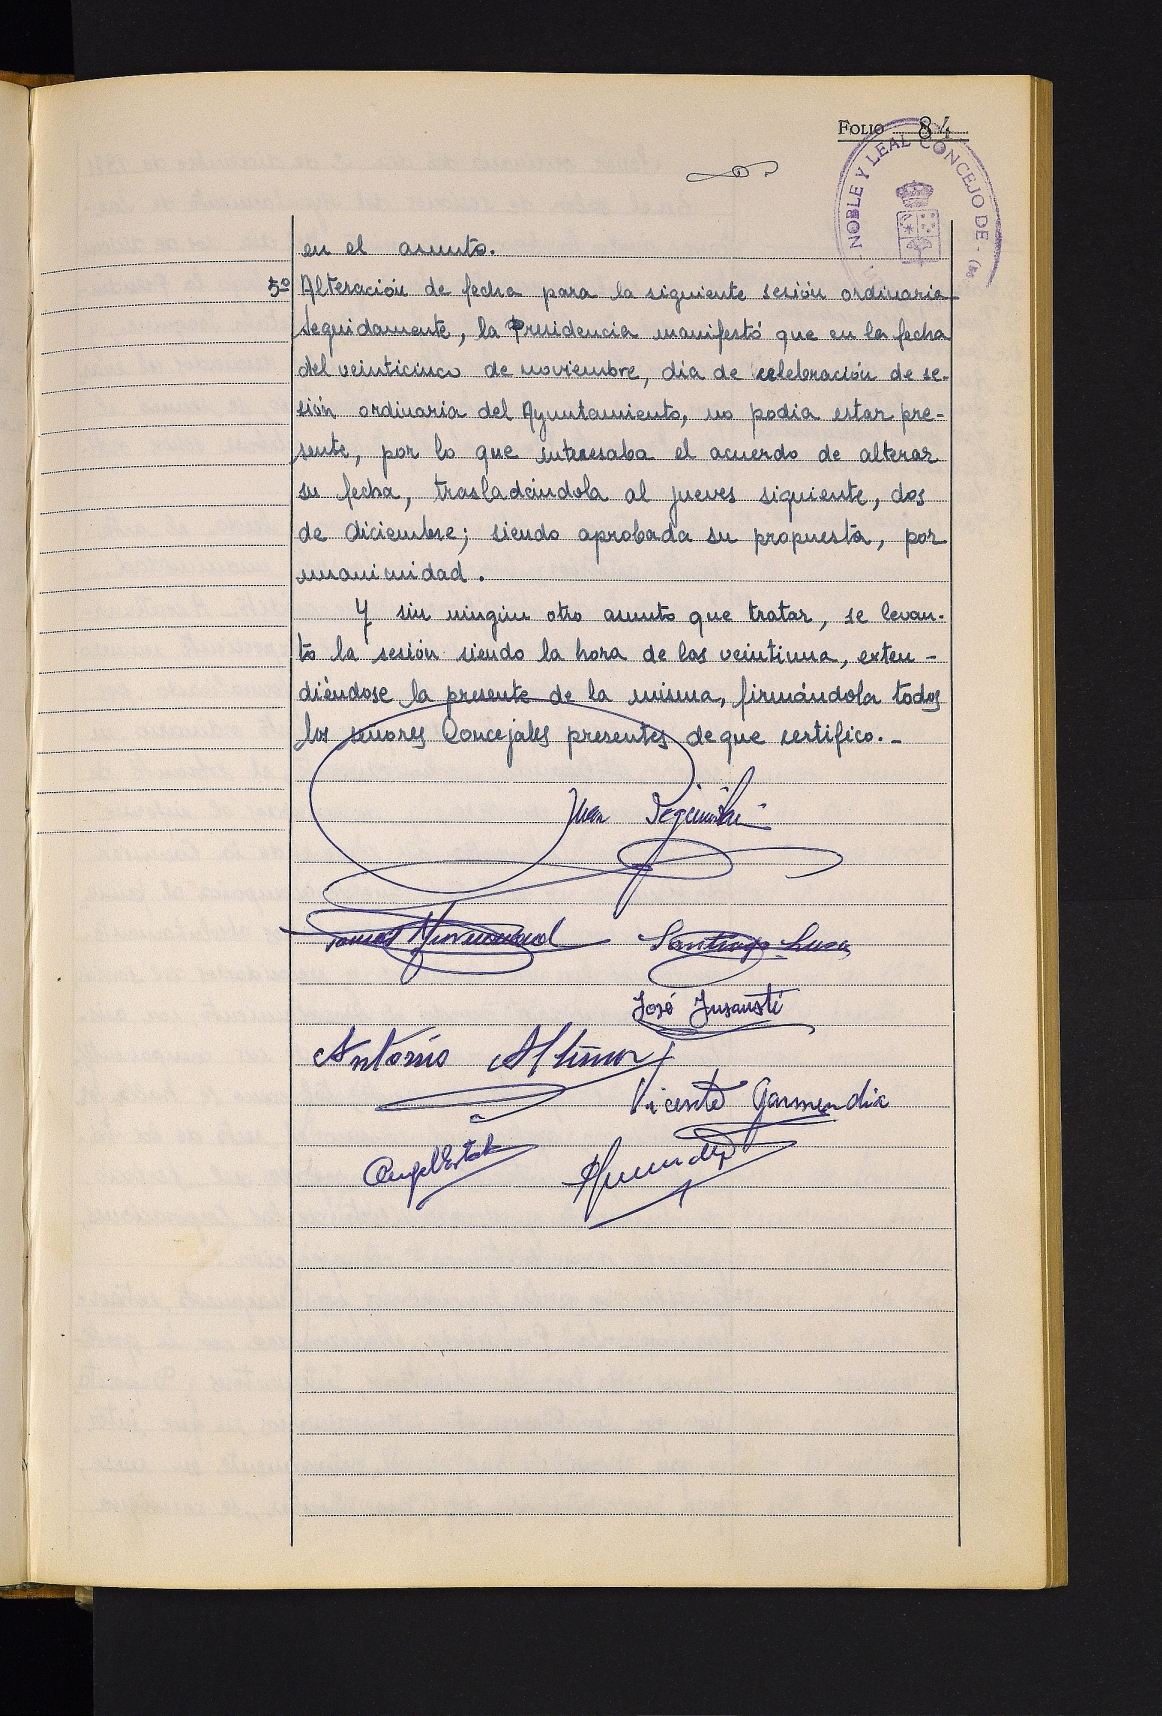 FOLIO 84
NOBLE Y LEAL CONCEJO DE
en el asunto.
5º Alteración de fecha para la siguiente sesión ordinaria
Seguidamente, la Presidencia manifestó que en la fecha
del veinticinco de noviembre, dia de celebración de se-
sión ordinaria del Ayuntamiento, no podia estar pre-
sente, por lo que interesaba el acuerdo de alterar
su fecha, trasladándola al jueves siguiente, dos
de diciembre; siendo aprobada su propuesta, por
unanimidad.
Y sin ningún otro asunto que tratar, se levan-
tó la sesión siendo la hora de las veintiuna, exten-
diéndose la presente de la misma, firmándola todos
los señores Concejales presentes de que certifico.-
Juan
Tomas
Santiago
José Insausti
Antonio
Vicente Garmendia
Angel